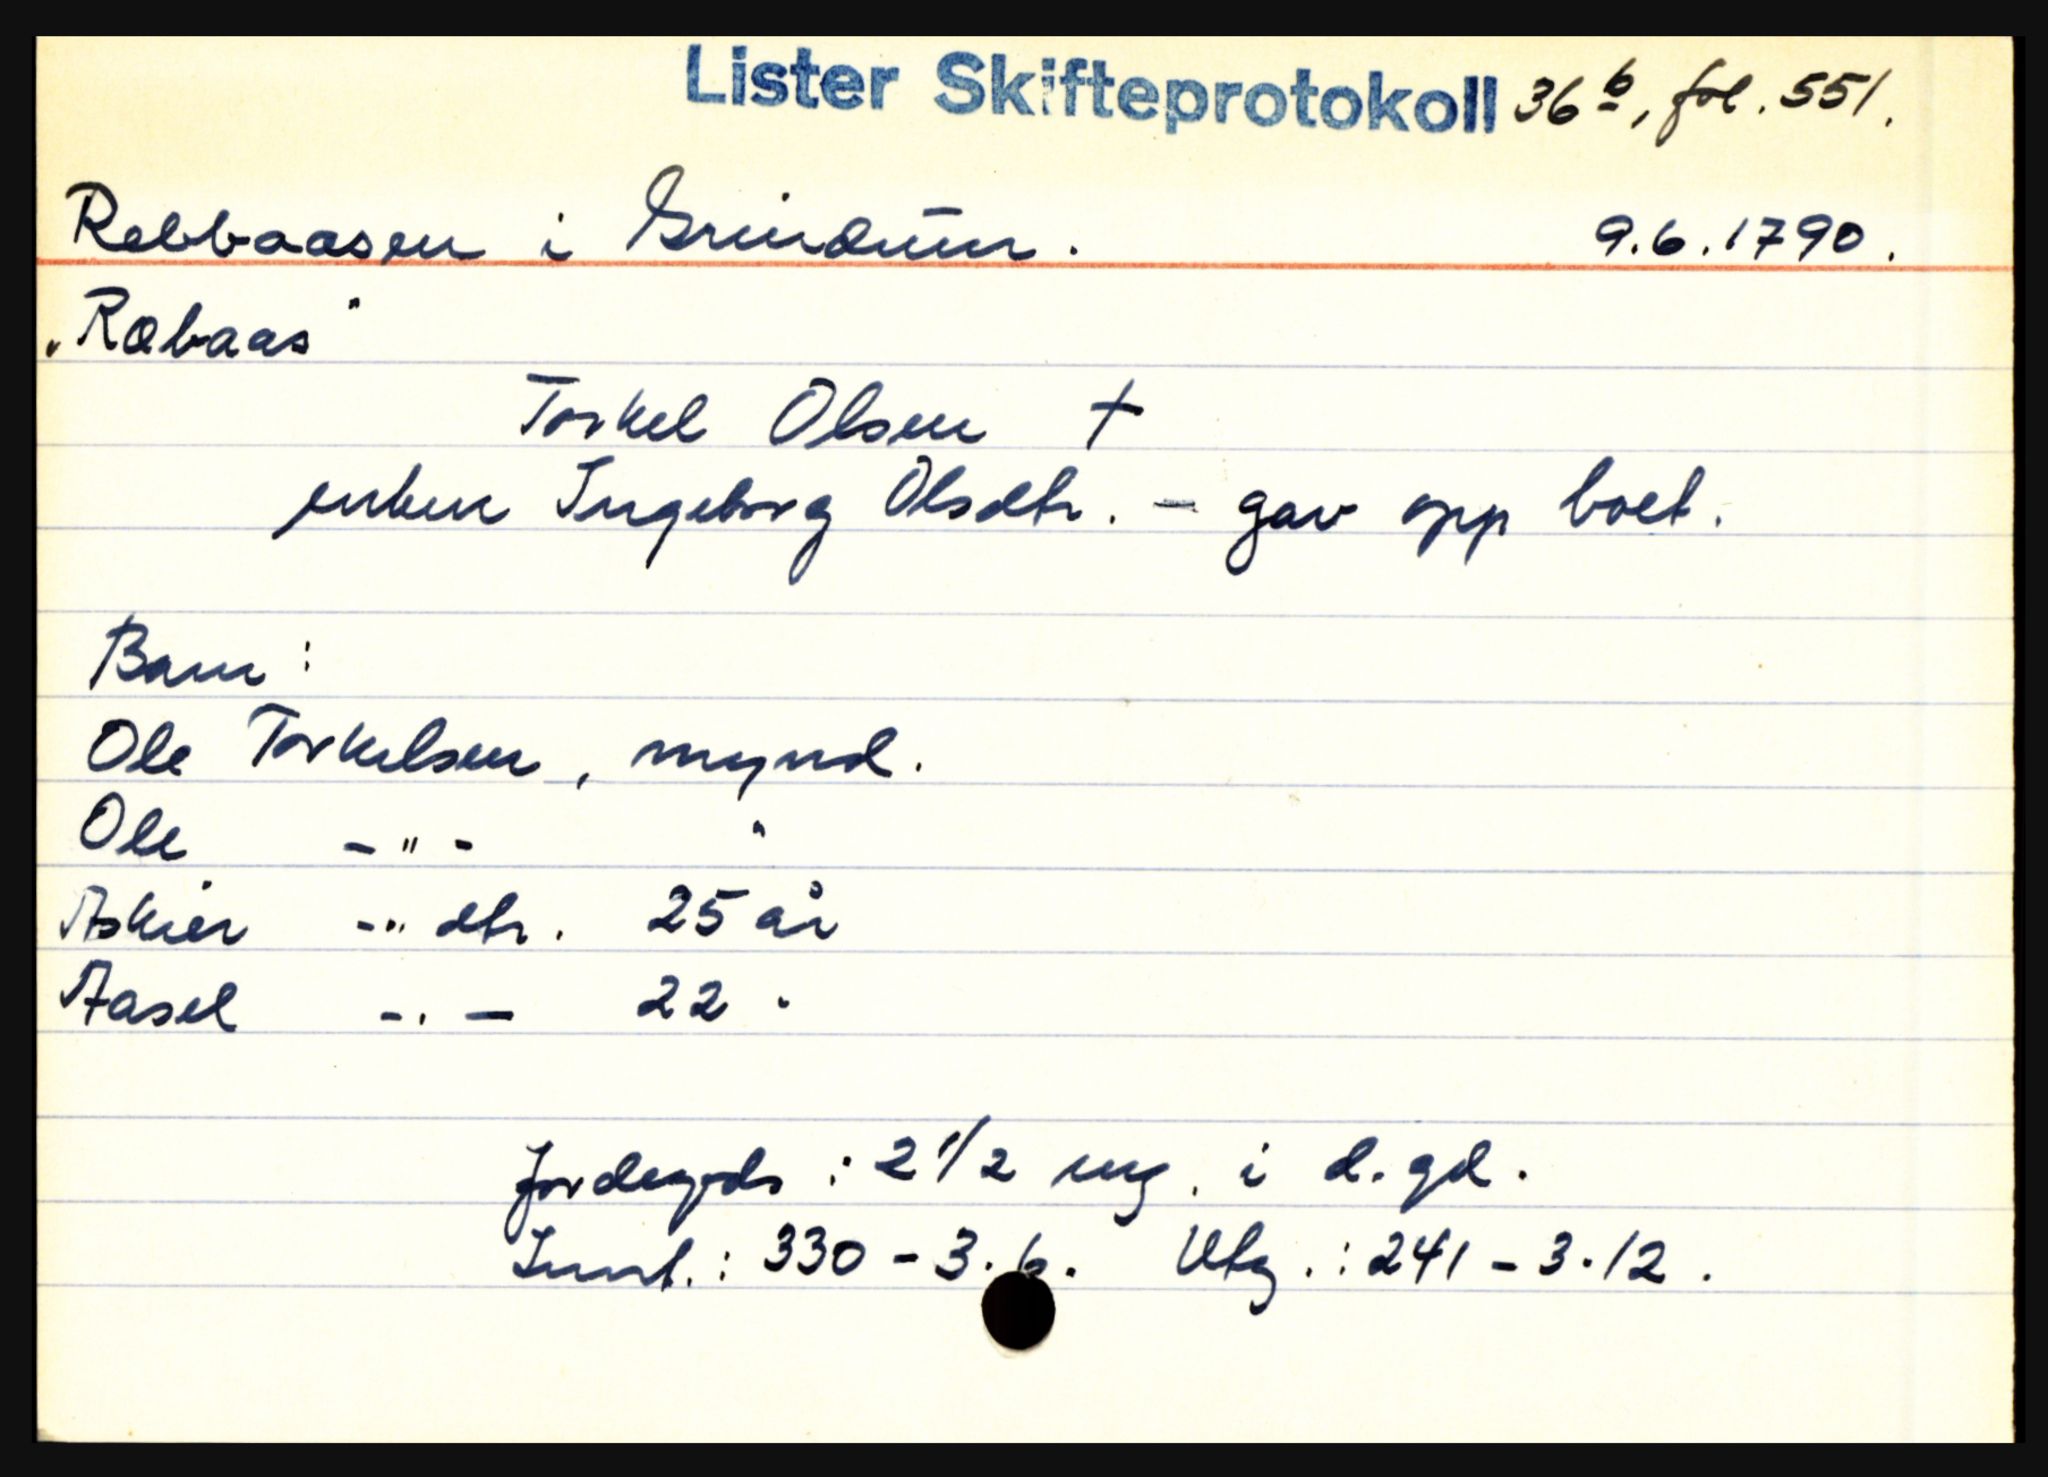 Lister Skifteprotokoll 36 b, fol. 551.
Rebbaasen i Grindum. 9.6.1790.
„Ræbaas"
Torkel Olsen †
enken Ingeborg Olsdtr. - gav opp boet.
Barn:
Ole Torkelsen, mynd.
Ole -"- "
Askier -"- dtr. 25 år
Aasel -"- 22 "
Jordegods: 2 1/2 eng. i d. gd.
Innt.: 330 - 3 . 6. Utg.: 241 - 3 . 12.